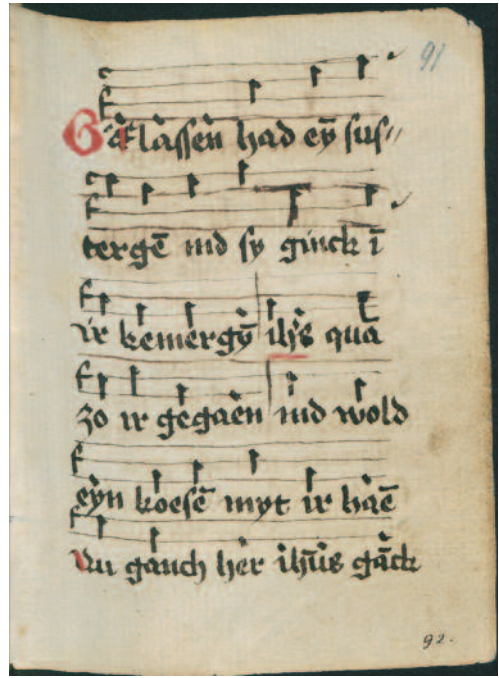 91
Gāt lassen had eȳ sus-//
tergē ind sy ginck ī
ir kemergȳ ihs quā
zo ir gegaen ind wold
eyn koesē myt ir haē
Nu gauch her ihūs gack
92.